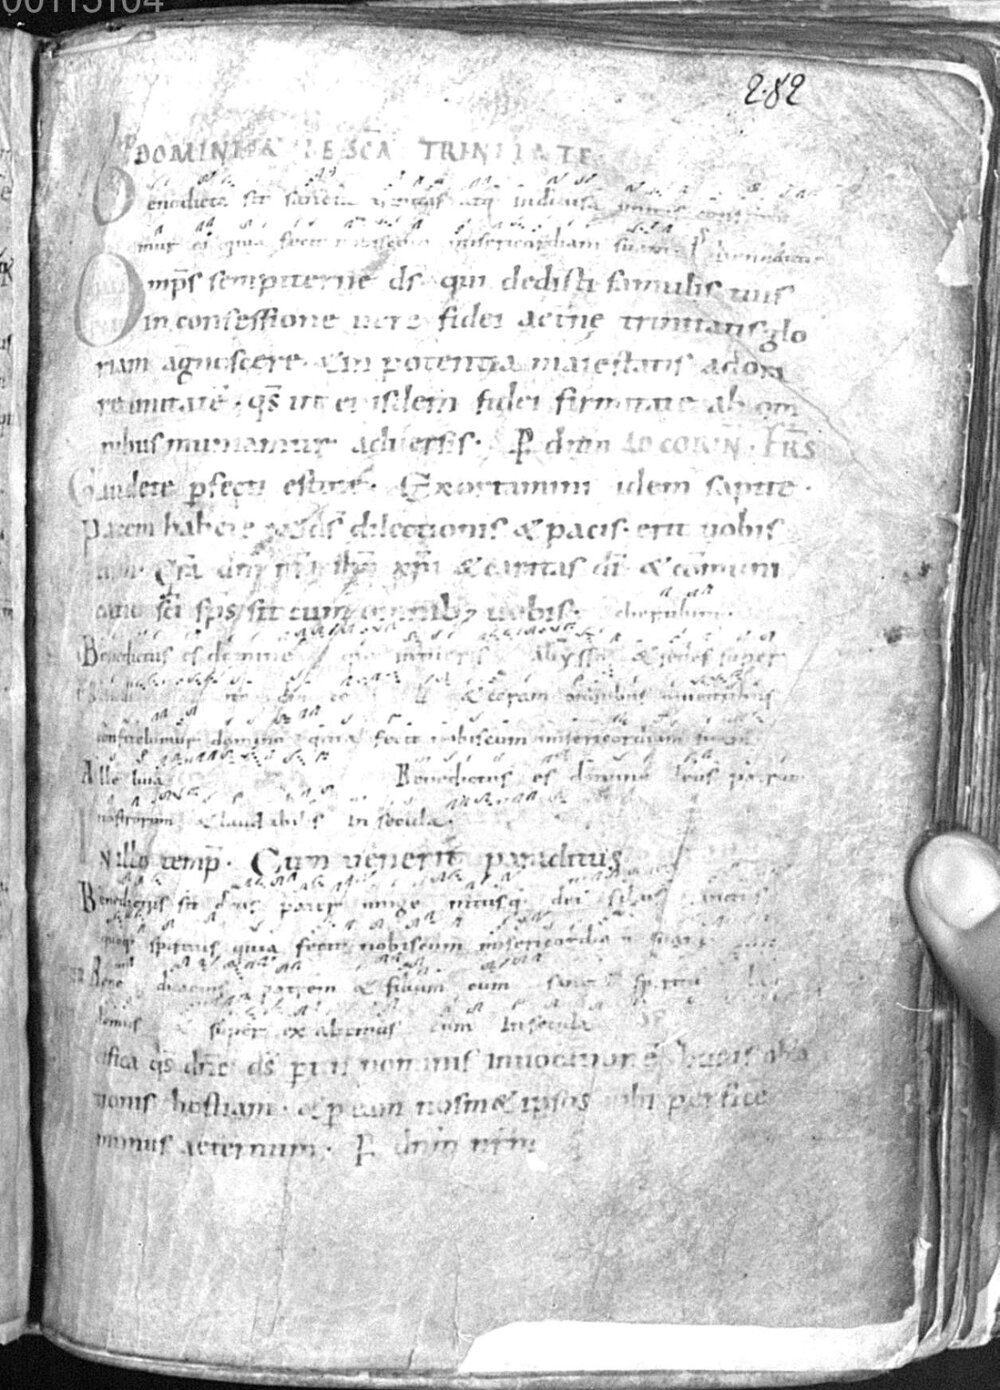 00115164
282
DOMINICA DE SCA TRINITATE
Benedicta sit sancta trinitas atq indiuisa unitas confite
mur ei quia fecit nobiscum misericordiam suam. Ps benedicamus
Omps sempiterne ds qui dedisti famulis tuis
in confessione uere fidei aetnę trinitatis glo
riam agnoscere. & in potentia maiestatis adora
re unitatē. qs ut eiusdem fidei firmitate ab om
nibus muniamur aduersis. P dnm AD CORIN. FRS
Gaudete pfecti estote. Exortamini idem sapite.
pacem habete. & ds dilectionis & pacis. erit uobis
cum. Gra dni nri ihu xpi & caritas di & comuni
catio sci sps sit cum omnib; uobis. cherubim.
Benedictus es domine qui intueris abyssos & sedes super
& coram omnibus uiuentibus
confitebimur domino quia fecit nobiscum misericordiam suam
Alleluia Benedictus es domine deus patrum
nostrorum & laudabilis in secula.
IN illo temp. Cum uenerit paraclitus
Benedictus sit deus pater unige nitusq dei filius sanctus
quoq spiritus quia fecit nobiscum misericordia suam
Bene dicamus patrem & filium cum sancto spiritu lau
demus & super ex altemus eum In secula
ifica qs dne ds p tui nominis inuocatione huius obla
tionis hostiam. & p eam nosm& ipsos tibi perfice
munus aeternum. P dnm nrm